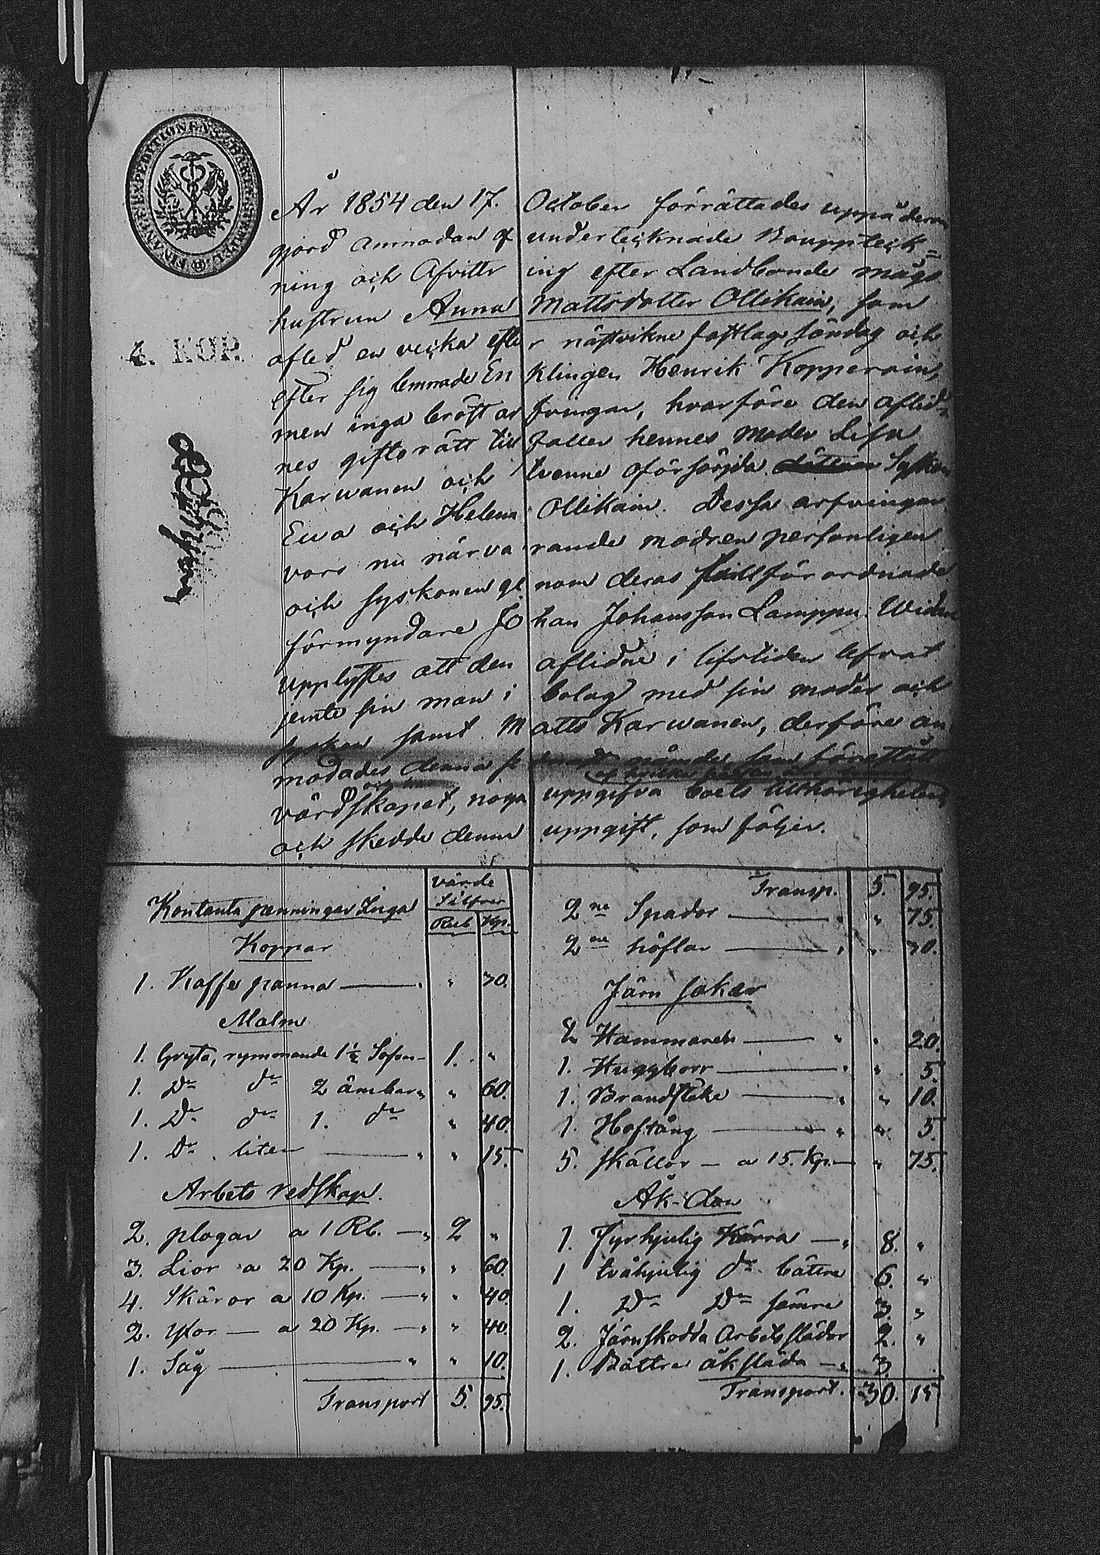 År 1854 den 17. October förrättades uppå derom
gjord anmodan af undertecknade Bouppteck=
ning och Afvittring efter Landbonde mågs
hustrun Anna Mattsdotter Ollikain, som
afled en vecka efter nästvikne fastlags söndag och
efter sig lemnade Enklingen Henrik Kopperoin,
men inga bröstarfvingar, hvarföre den aflid=
nes giftorätt tillfaller hennes moder Lisa
Karwanen och tvenne oförsörjda Syskon
Ewa och Helena Ollikain. Dessa arfvingar
voro nu närvarande modren personligen
och syskonen genom deras förordnade
förmyndare Johan Johansson Lamppu. Widare
upplystes att den aflidne i lifstiden lefvat
jemte sin man i bolag med sin moder och
syskon samt Matts Karwanen, derföre an=
modades denna som förestått
värdskapet, noga uppgifva boets tillhörigheter
och skedde denna uppgift, som följer.
4. KOP.
värde
Silfver
Rub Kp.
Kontanta penningar Inga
Koppar
1. Kaffe panna — " 70.
Malm
1. Gryta, rymmande 1½ — 1. "
1. Do do 2 ämbar " 60.
1. Do do 1. do " 40.
1. Do liten — " 15.
Arbets redskap.
2. plogar a 1 Rb. — 2 "
3. Lior a 20 Kp. — " 60.
4. Skäror a 10 Kp. — " 40.
2. Yxor — a 20 Kp. — " 40.
1. Såg — " 10.
Transport 5. 95.
Transp. 5. 95.
2ne Spador — " 75.
2ne höflar — " 70.
Järn saker
2 Hammare — " 20.
1. Huggborr — " 5.
1. Brandstake — " 10.
1. Hoftång — " 5.
5. skällor — a 15. Kp. — " 75.
Åk-don
1. Fyrhjulig Kärra — 8. "
1 tvåhjulig do bättre 6. "
1. Do Do sämre 3. "
2. Järnskodda Arbetsslädor 2. "
1. Bättre åksläda — 3.
Transport. 30. 15